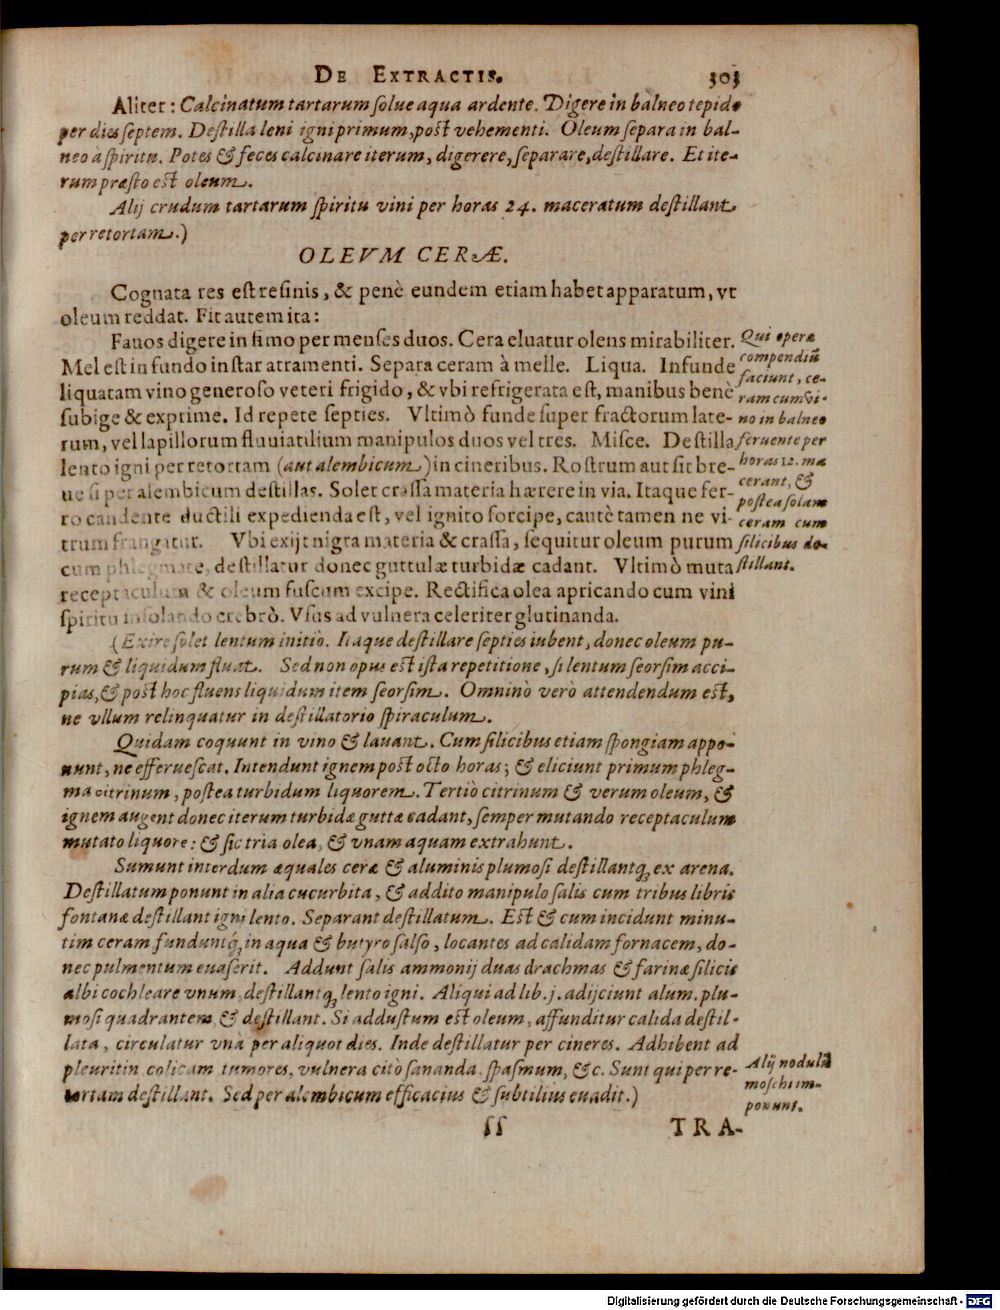 DE EXTRACTIS. 303
Aliter: Calcinatum tartarum ſolue aqua ardente. Digere in balneo tepido
per dies ſeptem. Deſtilla leni igni primum, poſt vehementi. Oleum ſepara in bal-
neo à ſpiritu. Potes & feces calcinare iterum, digerere, ſeparare, deſtillare. Et ite-
rum præſto eſt oleum.
Alij crudum tartarum ſpiritu vini per horas 24. maceratum deſtillant
per retortam.)
OLEVM CERÆ.
Cognata res eſt reſinis, & penè eundem etiam habet apparatum, vt
oleum reddat. Fit autem ita:
Fauos digere in fimo per menſes duos. Cera eluatur olens mirabiliter.
Mel eſt in fundo inſtar atramenti. Separa ceram à melle. Liqua. Infunde
liquatam vino generoſo veteri frigido, & vbi refrigerata eſt, manibus benè
ſubige & exprime. Id repete ſepties. Vltimò funde ſuper fractorum late-
rum, vel lapillorum fluuiatilium manipulos duos vel tres. Miſce. Deſtilla
lento igni per retortam (aut alembicum) in cineribus. Roſtrum aut ſit bre-
ue ſi per alembicum deſtillas. Solet craſſa materia hærere in via. Itaque fer-
ro candente ductili expedienda eſt, vel ignito forcipe, cautè tamen ne vi-
trum frangatur. Vbi exijt nigra materia & craſſa, ſequitur oleum purum
cum phlegmate, deſtillatur donec guttulæ turbidæ cadant. Vltimò muta
receptaculum & oleum fuſcum excipe. Rectifica olea apricando cum vini
ſpiritu inſolando crebrò. Vſus ad vulnera celeriter glutinanda.
Qui operæ
compendiũ
faciunt, ce-
ram cum vi-
no in balneo
feruente per
horas 12. ma
cerant, &
poſtea ſolam
ceram cum
ſilicibus de-
ſtillant.
(Exire ſolet lentum initiò. Itaque deſtillare ſepties iubent, donec oleum pu-
rum & liquidum fluat. Sed non opus eſt iſta repetitione, ſi lentum ſeorſim acci-
pias, & poſt hoc fluens liquidum item ſeorſim. Omninò verò attendendum eſt,
ne vllum relinquatur in deſtillatorio ſpiraculum.
Quidam coquunt in vino & lauant. Cum ſilicibus etiam ſpongiam appo-
nunt, ne efferueſcat. Intendunt ignem poſt octo horas; & eliciunt primum phleg-
ma citrinum, poſtea turbidum liquorem. Tertiò citrinum & verum oleum, &
ignem augent donec iterum turbidæ guttæ cadant, ſemper mutando receptaculum
mutato liquore: & ſic tria olea, & vnam aquam extrahunt.
Sumunt interdum æquales ceræ & aluminis plumoſi deſtillantq; ex arena.
Deſtillatum ponunt in alia cucurbita, & addito manipulo ſalis cum tribus libris
fontanæ deſtillant igni lento. Separant deſtillatum. Eſt & cum incidunt minu-
tim ceram funduntq; in aqua & butyro ſalſo, locantes ad calidam fornacem, do-
nec pulmentum euaſerit. Addunt ſalis ammonij duas drachmas & farinæ ſilicis
albi cochleare vnum, deſtillantq; lento igni. Aliqui ad lib. j. adijciunt alum. plu-
moſi quadrantem, & deſtillant. Si adduſtum eſt oleum, affunditur calida deſtil-
lata, circulatur vnà per aliquot dies. Inde deſtillatur per cineres. Adhibent ad
pleuritin colicam tumores, vulnera citò ſananda, ſpaſmum, &c. Sunt qui per re-
tortam deſtillant. Sed per alembicum efficacius & ſubtilius euadit.)
Alij nodulũ
moſchi im-
ponunt.
ſſ TRA-
Digitalisierung gefördert durch die Deutsche Forschungsgemeinschaft - DFG